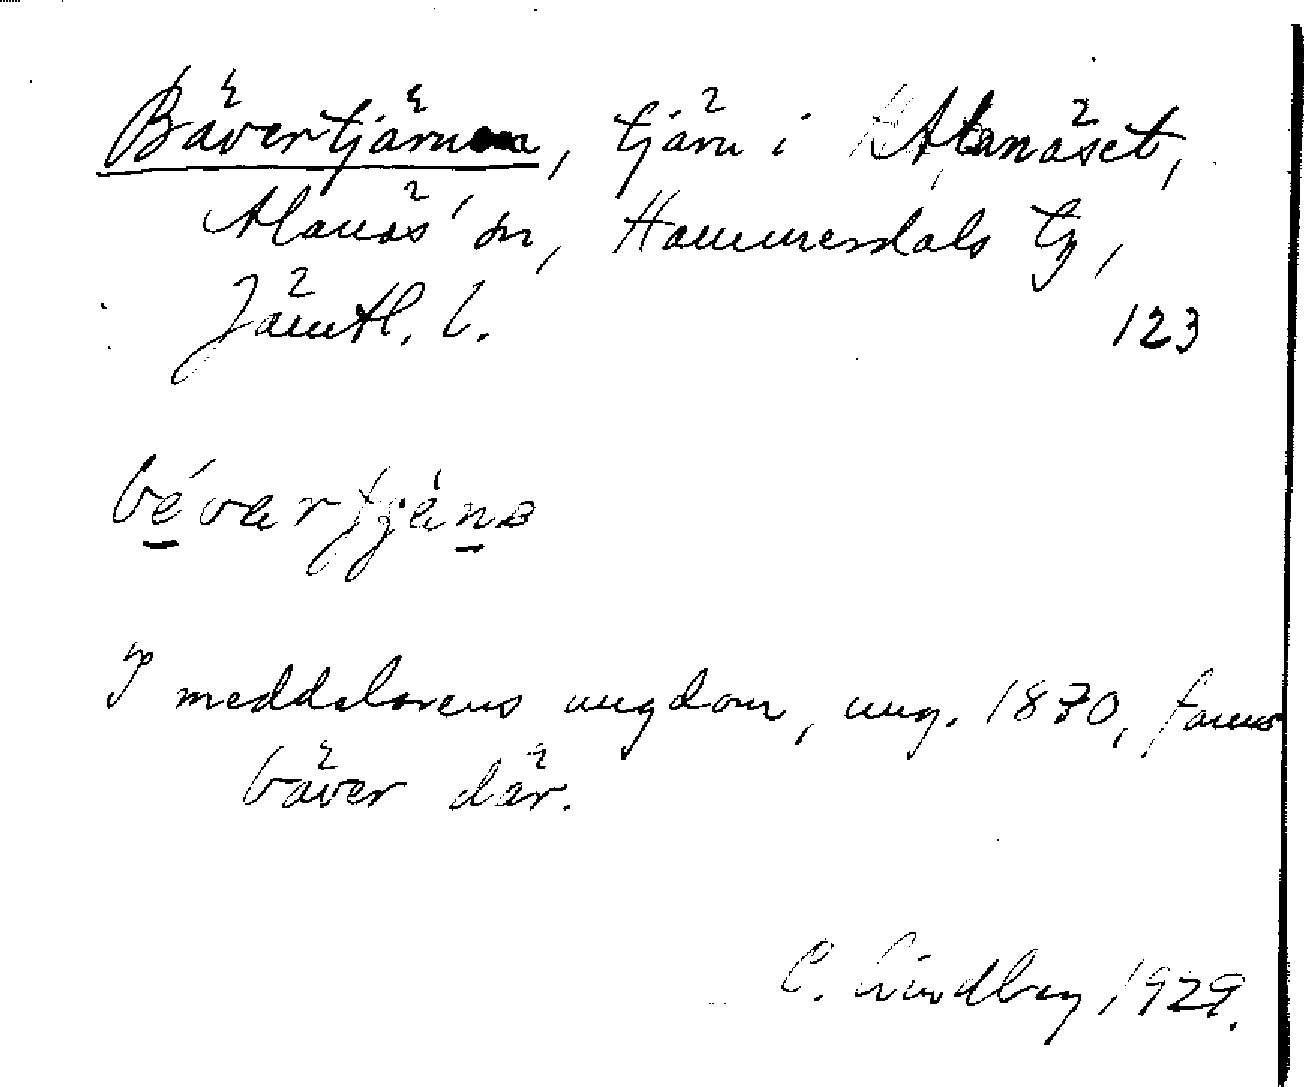 Bävertjärna, tjärn i Alanäset,
Alanäs' sn, Hammerdals tg,
Jämtl. l.
123
bévartjäna
I meddelarens ungdom, ung. 1870, fanns
bäver där.
C. Lindberg 1929.